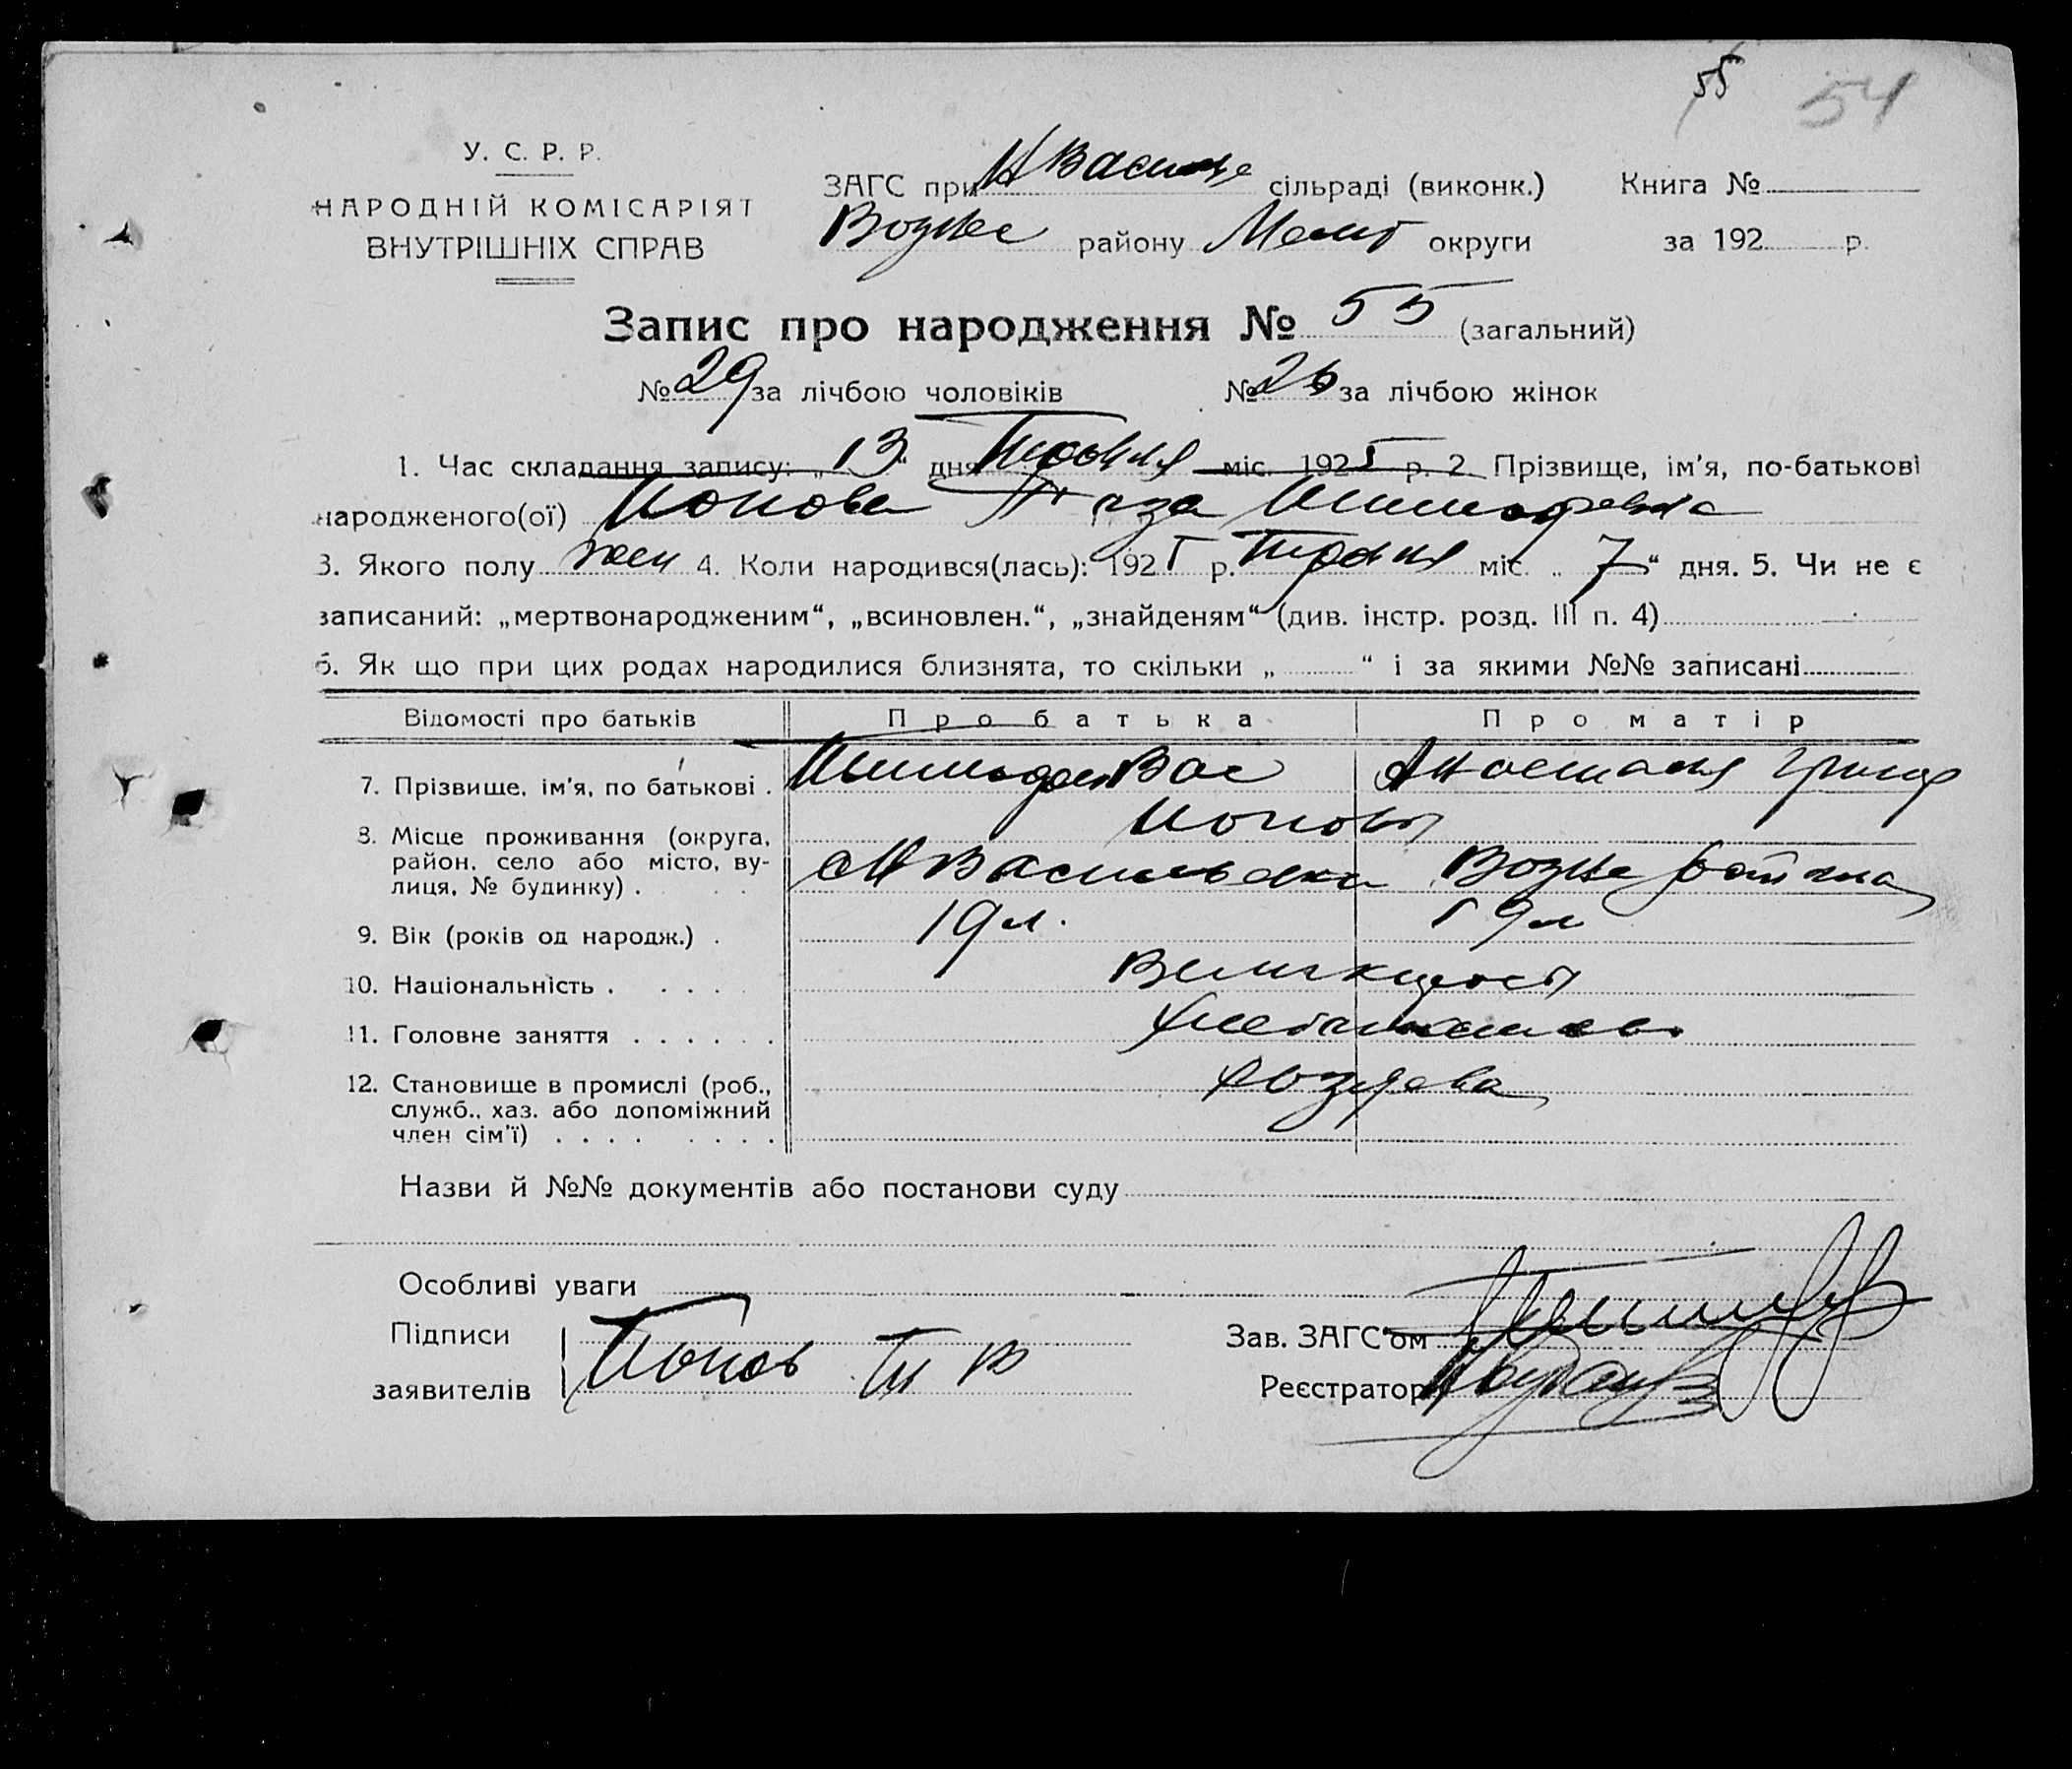 55 54
У. С. Р. Р.
НАРОДНІЙ КОМІСАРІЯТ
ВНУТРІШНІХ СПРАВ
ЗАГС при Н Василь сільраді (виконк.) Книга №
Возне району Меліт округи за 192 р.
Запис про народження № 55 (загальний)
№ 29 за лічбою чоловіків № 26 за лічбою жінок
1. Час складання запису: „13“ дня Травня міс. 1925 р. 2. Прізвище, ім'я, по-батькові
народженого(ої) Попова
3. Якого полу жен 4. Коли народився(лась): 1925 р. Травня міс. „7“ дня. 5. Чи не є
записаний: „мертвонародженим“, „всиновлен.“, „знайденям“ (див. інстр. розд. III п. 4)
6. Як що при цих родах народилися близнята, то скільки „ “ і за якими №№ записані
Відомості про батьків Про батька Про матір
7. Прізвище, ім'я, по батькові . Вас Анастасия Григор
Попови
8. Місце проживання (округа,
район, село або місто, ву-
лиця, № будинку) . Н Васильевка Возне района
9. Вік (років од народж.) . 19 л. 19 л
10. Національність . . . . Великорос
11. Головне заняття . . . . . . хлебопашество
12. Становище в промислі (роб.,
служб., хаз. або допоміжний
член сім'ї) . . . . . . . . хозяева
Назви й №№ документів або постанови суду
Особливі уваги
Підписи
заявителів Попов
Зав. ЗАГС'ом
Реєстратор